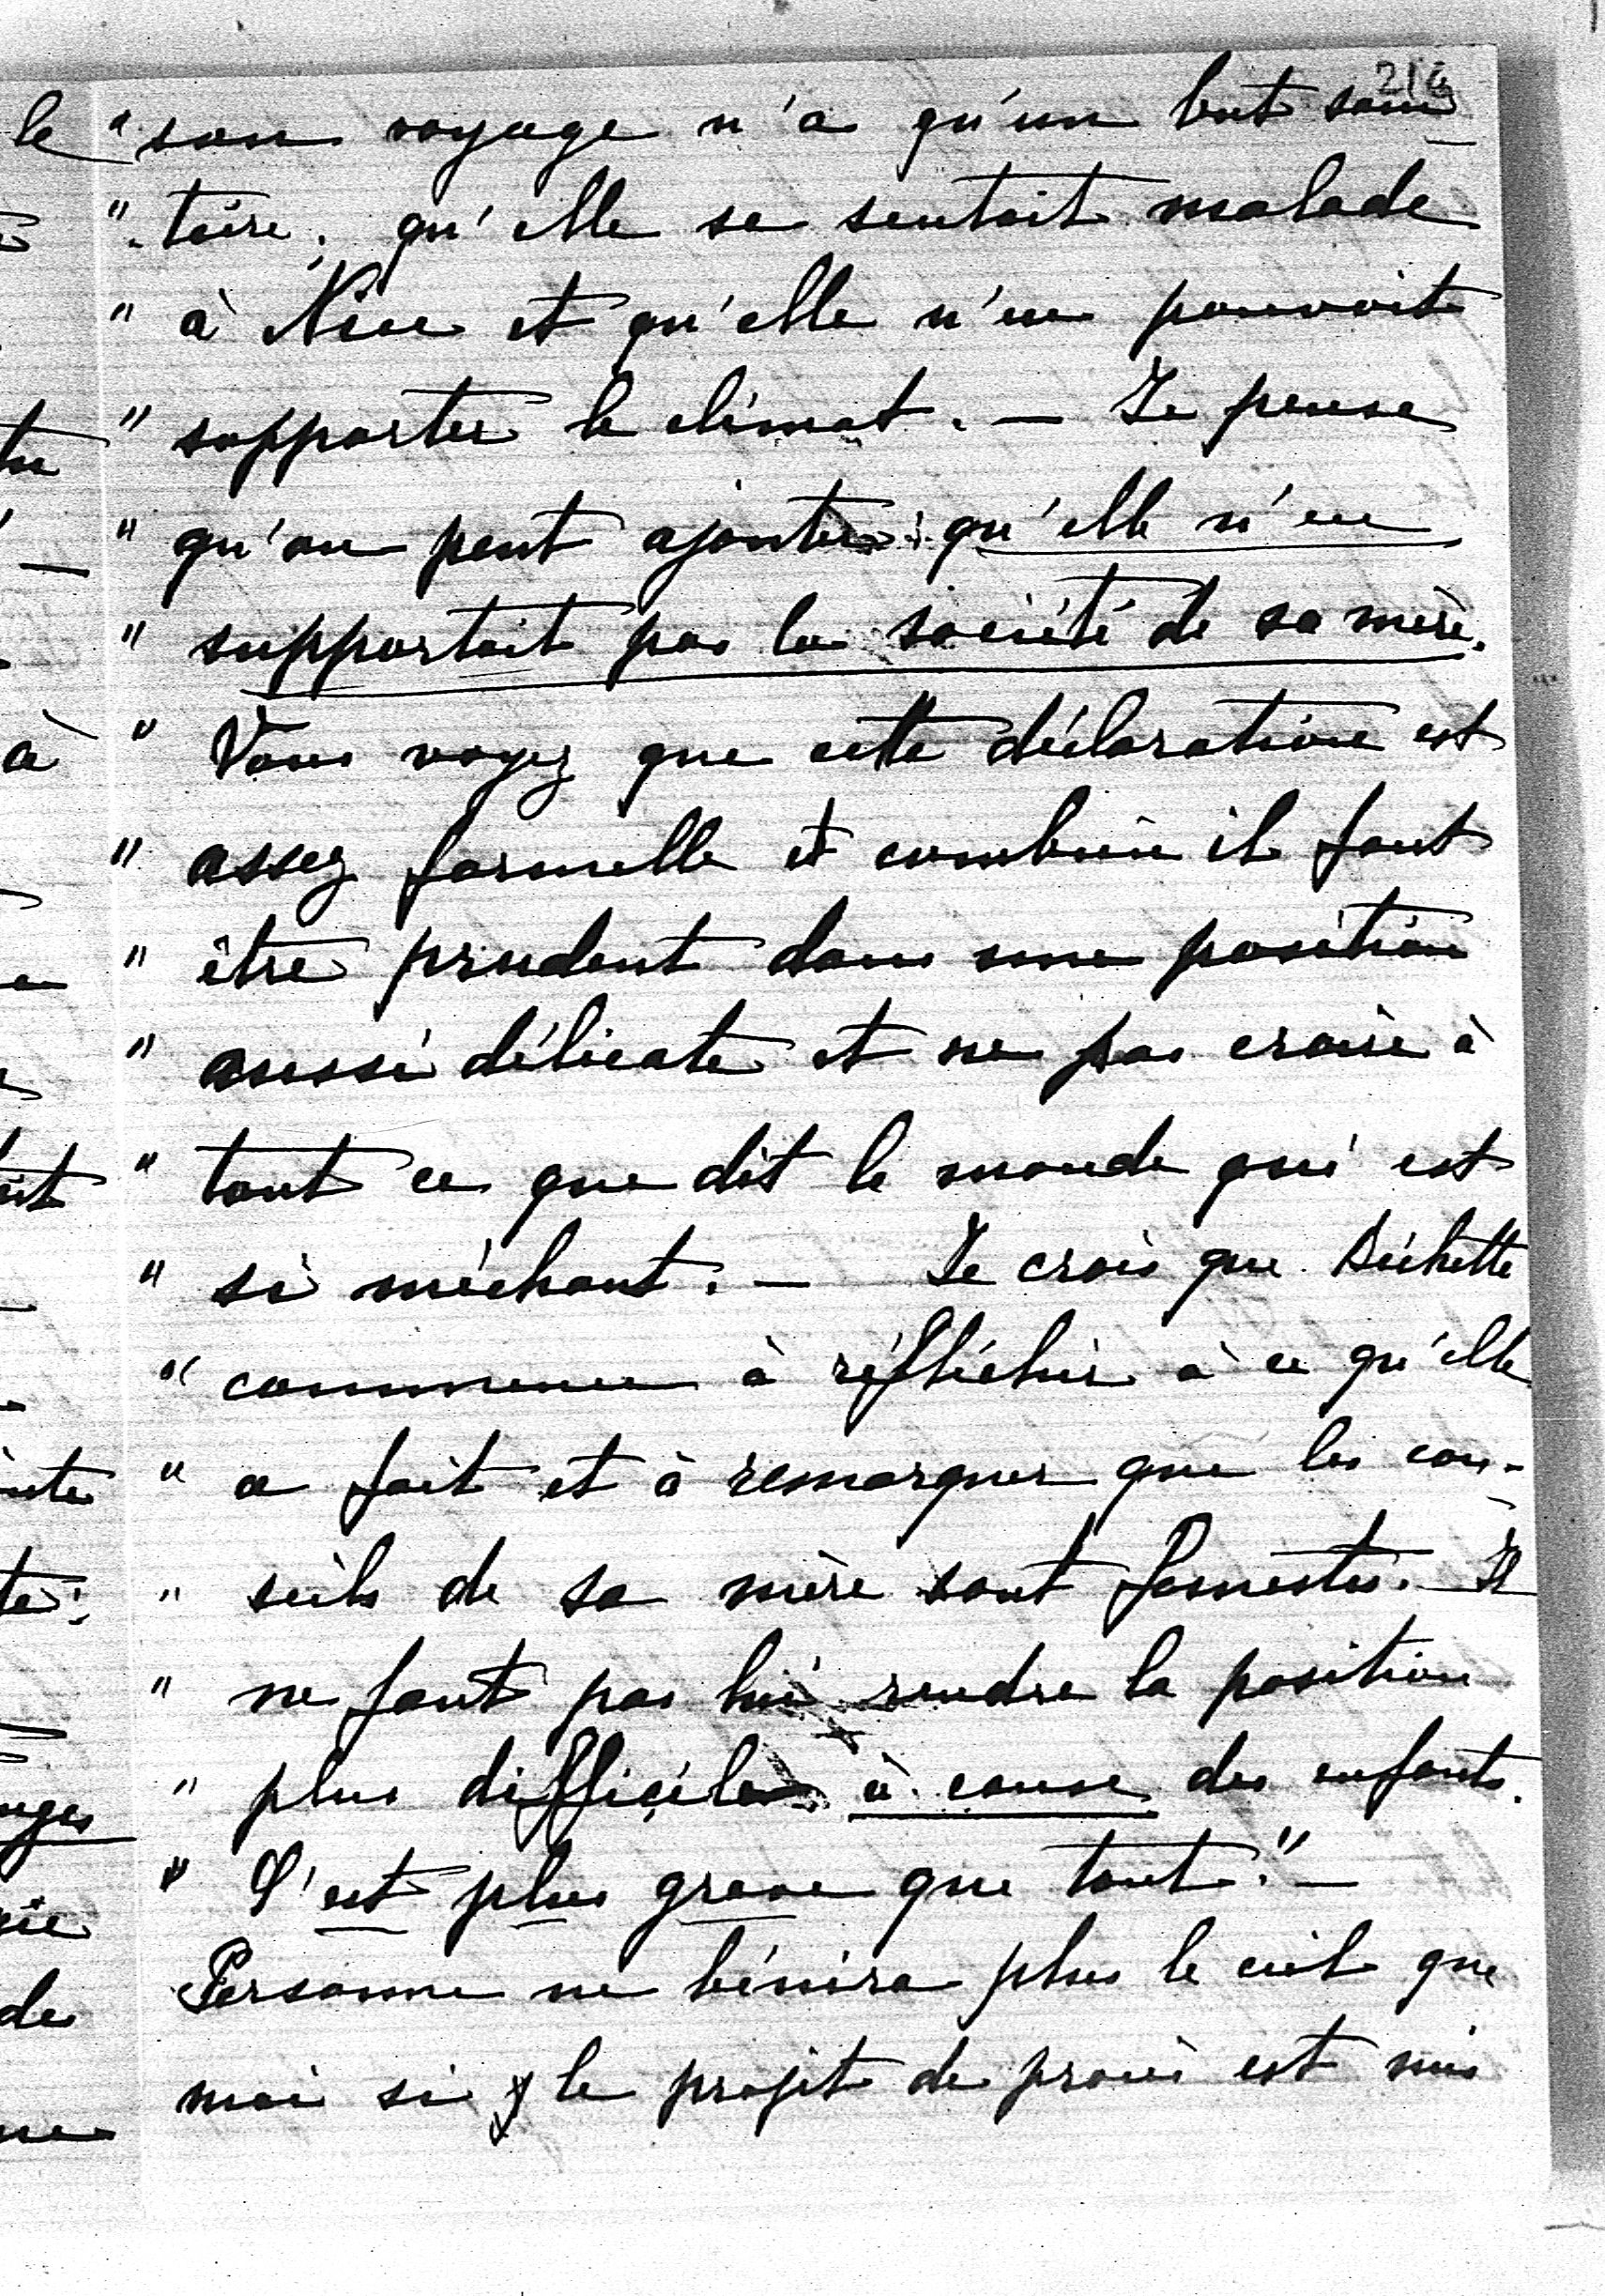 " son voyage n'a qu'un but sani
" -taire, qu'elle se sentait malade
" à Nice et qu'elle n'en pouvait
" supporter le climat. — Je pense
" qu'on peut ajouter : qu'elle n'en
" supportait pas la société de sa mère.
" Vous voyez que cette déclaration est
" assez formelle et combien il faut
" être prudent dans une position
" aussi délicate et ne pas croire à
" tout ce que dit le monde qui est
" si méchant. — Je crois que Béchette
" commence à réfléchir à ce qu'elle
" a fait et à remarquer que les con-
" seils de sa mère sont funestes. Il
" ne faut pas lui rendre la position
" plus difficile à cause des enfants.
" C'est plus grave que tout." —
Personne ne bénira plus le ciel que
moi si le projet de procès est mis